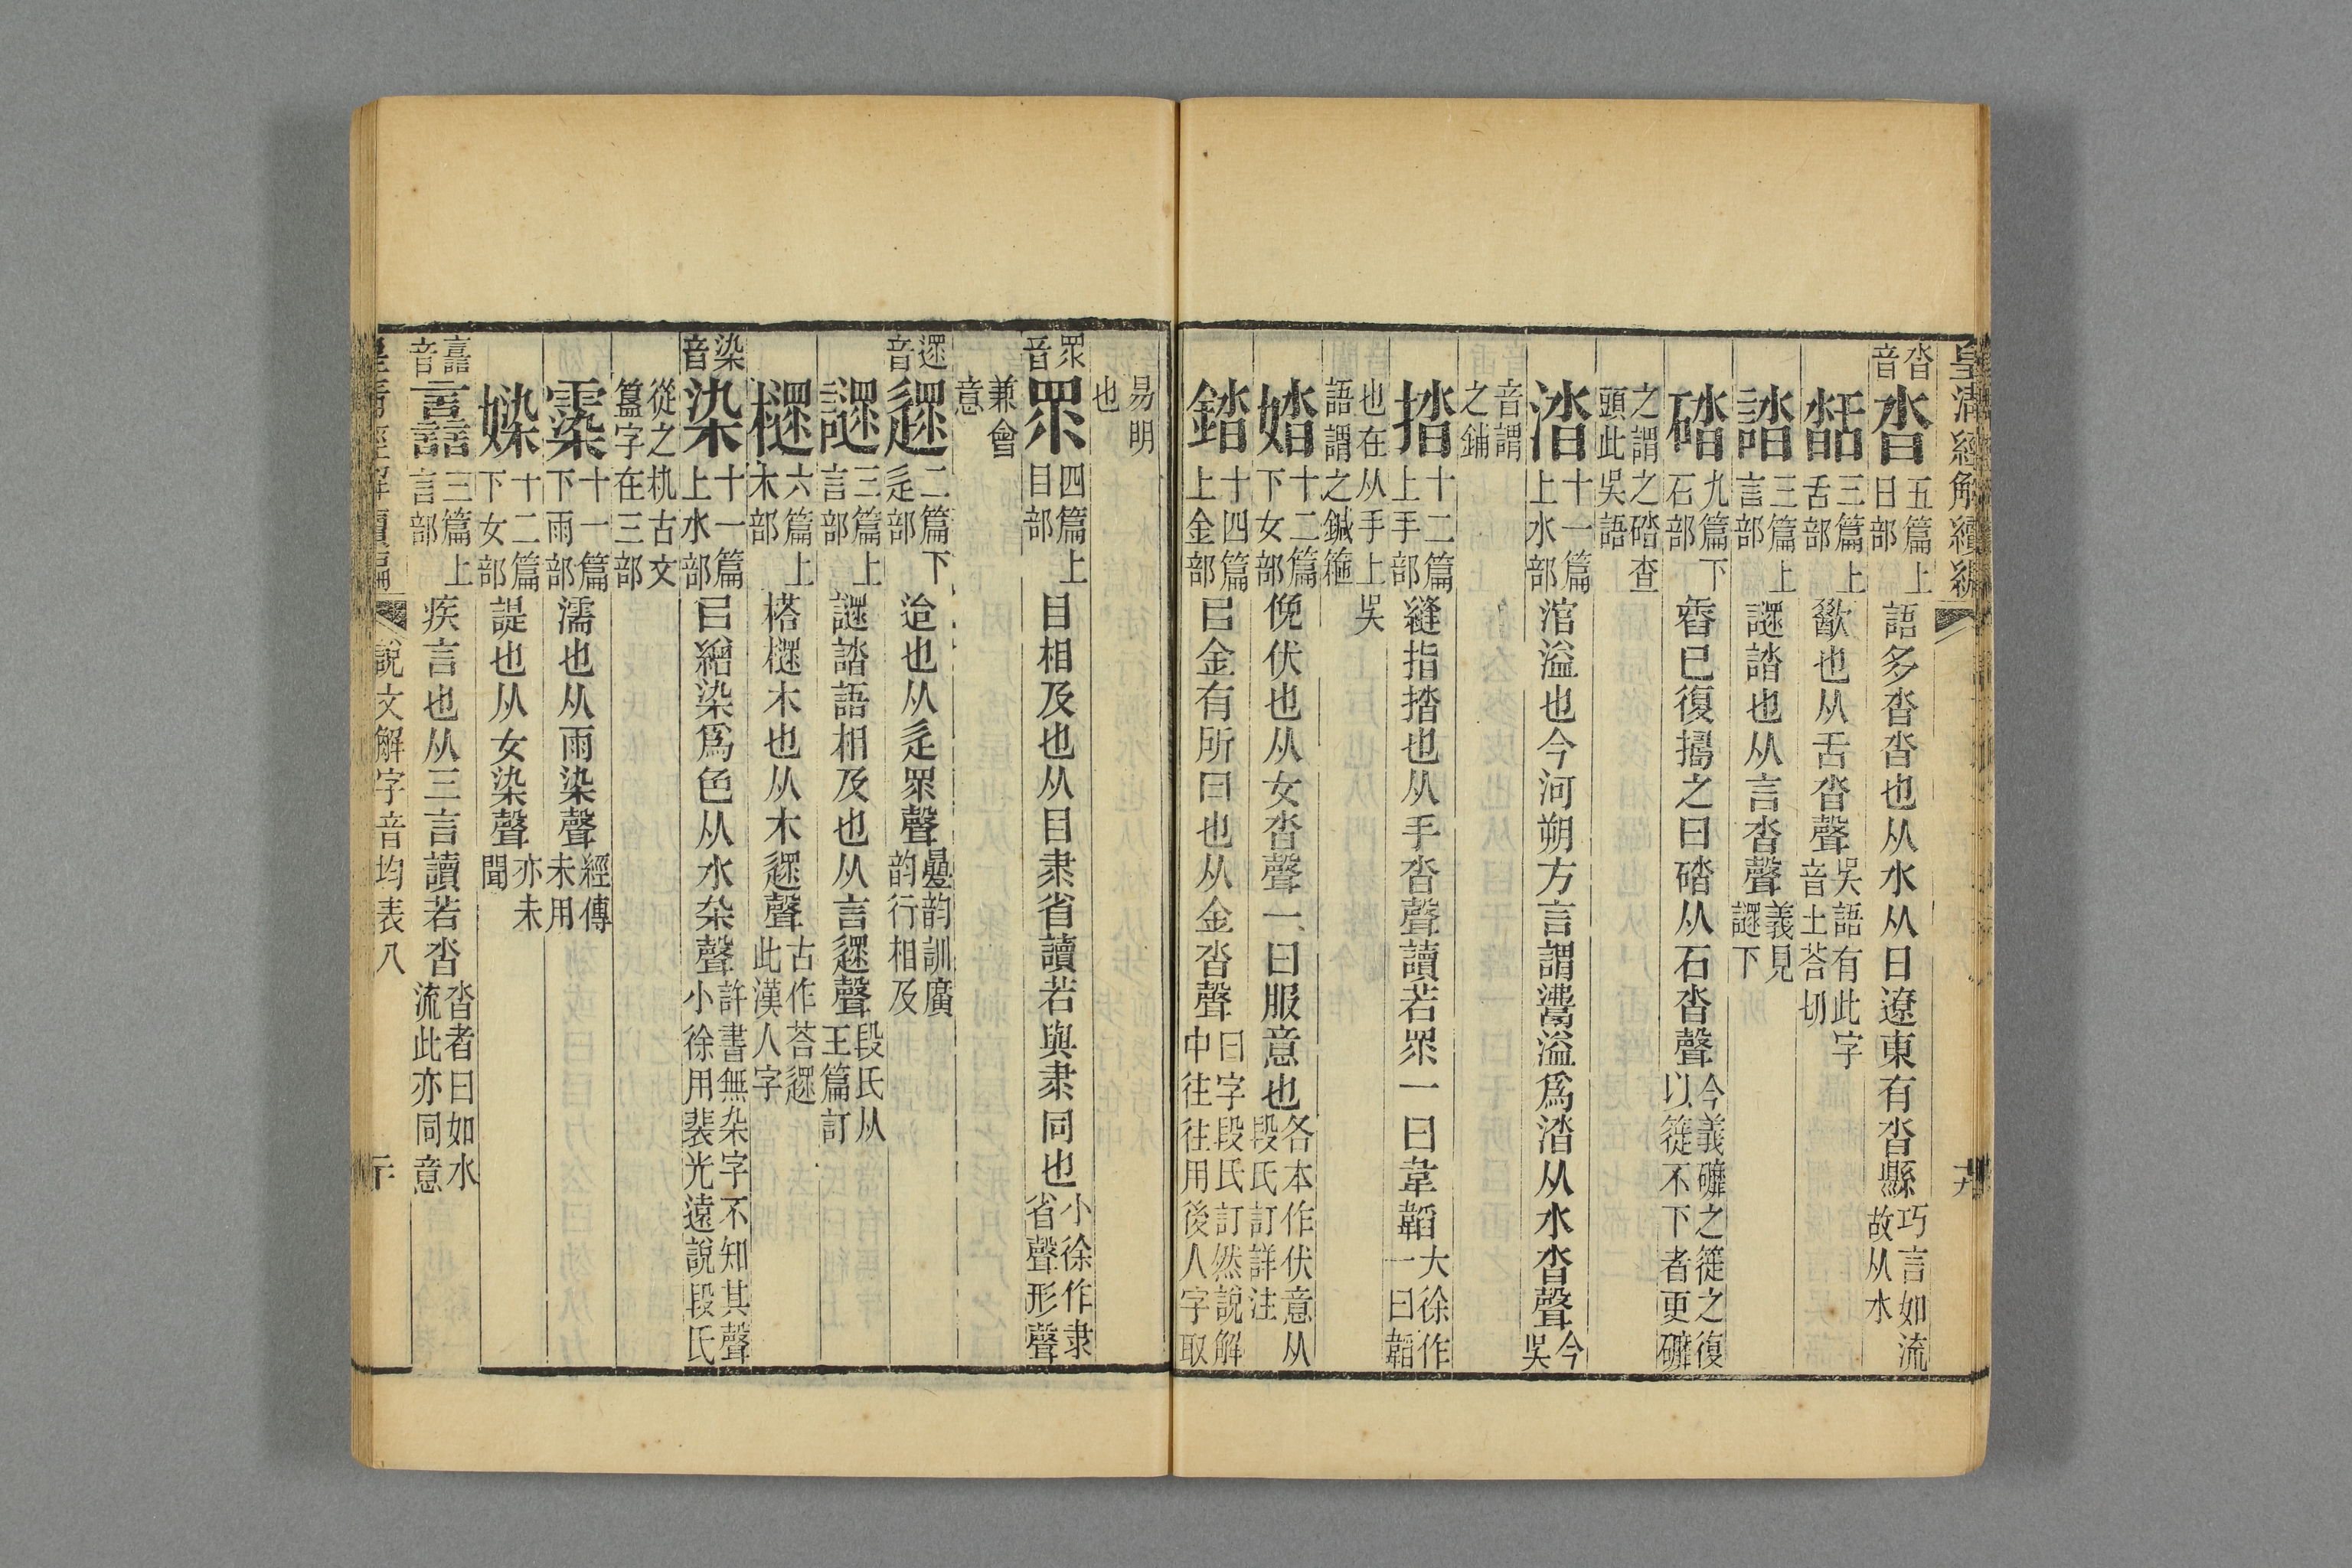 皇清經解續編
沓音 沓 五篇上日部 語多沓沓也从水从日遼東有沓縣 巧言如流故从水
𦧥 三篇上舌部 歠也从舌沓聲 吳語有此字音土荅切
誻 三篇上言部 謎誻也从言沓聲 義見下
碏 九篇下石部 已復擣之曰从石沓聲 今義礳之簁之復以簁不下者更礳
之謂之䃚查頭此吳語
涾 十一篇上水部 涫溢也今河朔方言謂灊溢爲涾从水沓聲 今吳
音謂之鋪
揩 十二篇上手部 縫指揩也从手沓聲讀若眔一曰韋韜 大徐作一曰韜
也在从手上吳語謂之鍼箍
婚 十二篇下女部 俛伏也从女沓聲一曰服意也 各本作伏意从段氏訂詳注
錔 十四篇上金部 㠯金有所冃也从金沓聲 冃字段氏訂然說解中往往用後人字取
易明也
眔音 眔 四篇上目部 目相及也从目隶省讀若與隶同也 小徐作隶省聲形聲
兼會意
遝音 遝 二篇下辵部 迨也从辵眔聲 韵訓廣韵行相及
謎 三篇上言部 誻語相及也从言遝聲 段氏从玉篇訂
㯚 六篇上木部 榙㯚木也从木遝聲 古作荅遝此漢人字
染音 染 十一篇上水部 㠯繒染爲色从水杂聲 許書無杂字不知其聲小徐用裴光遠說段氏
從之朹古文簋字在三部
霃 十一篇下雨部 濡也从雨染聲 經傳未用
媣 十二篇下女部 諟也从女染聲 亦未聞
譶音 譶 三篇上言部 疾言也从三言讀若沓 沓者曰如水流此亦同意
皇清經解續編 說文解字音均表八